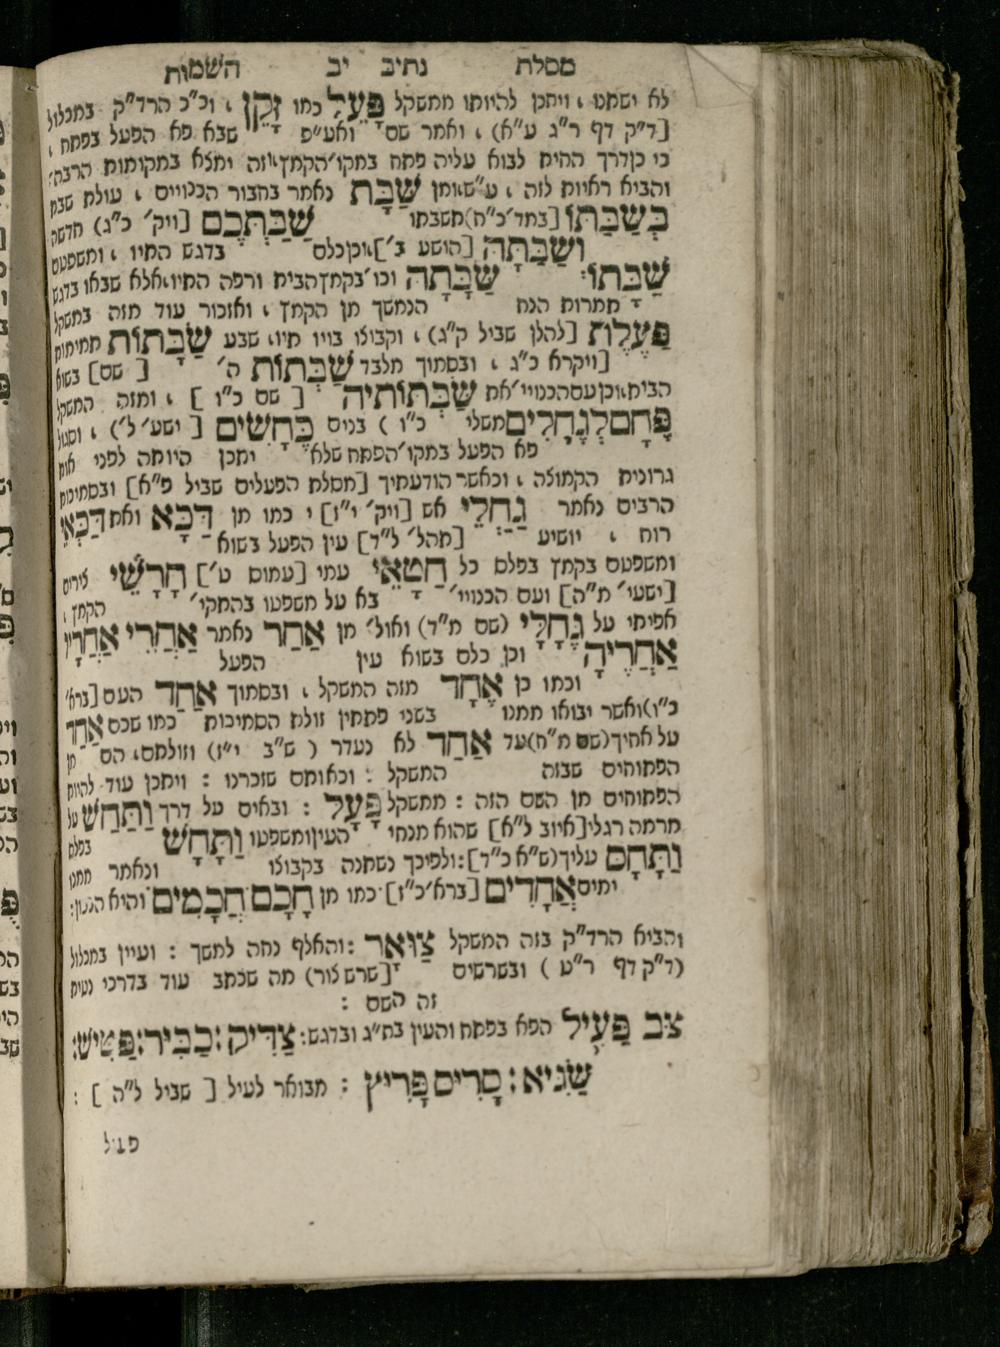 מסלת נתיב יב השמות
לא ישתנו ויתכן להיותו ממשקל פָּעֵל כמו זָקֵן , וכ״כ הרד״ק במכלול
[ד״ק דף ר״ג ע״א) , ואמר שם ואע״פ שבא פא הפעל בפתח ,
כי כן דרך החית לבוא עליה פתח במקו׳ הקמץ וזה ימצא במקומות הרבה׳
והביא ראיות לזה , ע״ש ומן שַׁבָּת נאמר בחבור הכנויים , עולת שבת
בְּשַׁבַּתּוֹ [במד׳ כ״ח) תשבתו שַׁבַּתְּכֶם [ויק׳ כ״ג) חדשה
וְשַׁבַּתָּהּ [הושע ב׳] וכן כלם בדגש התיו , ומשפטם
שַׁבָּתוֹ : שַׁבָּתָהּ וכו׳ בקמץ הבית ורפה התיו אלא שבאו בדגש
תמרות הנח הנמשך מן הקמץ , ואזכור עוד מזה במשקל
פַּעֶלֶת [להלן שביל ק״ג) , וקבוצו בויו תיו, שבע שַׁבָּתוֹת תמימות
[ויקרא כ״ג , ובסמוך מלבד שַׁבְּתוֹת ה׳ [ שם] בשוא
הבית וכן עם הכנויי׳ את שַׁבְּתוֹתֶיהָ [ שם כ״ו ] , ומזה המשקל
פֶּחָם לְגֶחָלִים משלי כ״ו ) בנים כֶּחָשִׁים [ ישע׳ ל׳) , וסגול
פא הפעל במקו׳ הפתח שלא יתכן היותה לפני אות
גרונית הקמוצה , וכאשר הודעתיך [מסלת הפעלים שביל פ״א] ובסמיכות
הרבים נאמר גַּחֲלֵי אש [ויק׳ י״ז] כמו מן דַּכָּא ואת דַּכְּאֵי
רוח , יושיע [תהל׳ ל״ד] עין הפעל בשוא
ומשפטם בקמץ בפלם כל חַטָּאֵי עמי [עמוס ט׳] חָרָשֵׁי צירים
[ישעי׳ מ״ה] ועם הכנויי׳ בא על משפטו בהתקי׳ הקמץ ,
אפיתי על גֶּחָלָי (שם מ״ד) ואול׳ מן אַחַר נאמר אַחֲרֵי אַחֲרָיו
אַחֲרֶיהָ וכן כלם בשוא עין הפעל
וכמו כן אֶחָד מזה המשקל , ובסמוך אַחַד העם [ברא׳
כ״ו) ואשר יבואו ממנו בשני פתחין זולת הסמיכות כמו שכם אַחַד
על אחיך (שם מ״ח) עד אַחַד לא נעדר ( ש״ב י״ז) וזולתם, הם מן
הפתוחים שבזה המשקל : וכאותם שזכרנו : ויתכן עוד להיות
הפתוחים מן השם הזה : ממשקל פָּעַל : ובאים על דרך וַתַּחַשׁ על
מרמה רגלי [איוב ל״א] שהוא מנחי העין ומשפטו וַתָּחָשׁ בפלם
וַתָּחָס עליך (ש״א כ״ד] : ולפיכך נשתנה בקבוצו ונאמר ממנו
ימים אֲחָדִים [ברא׳ כ״ז] כמו מן חָכָם חֲכָמִים והיא הנכון :
והביא הרד״ק בזה המשקל צַוָּאר : והאלף נחה למשך : ועיין במכלול
(ד״ק דף ר״ע ) ובשרשים [שרש צור) מה שכתב עוד בדרכי נטית
זה השם :
צב פַּעִיל הפא בפתח והעין בח״ג ובדגש : צַדִּיק : כַּבִּיר : פַּטִּישׁ :
שַׂגִּיא : סָרִיס פָּרִיץ : מבואר לעיל [ שביל ל״ה ] :
פעל